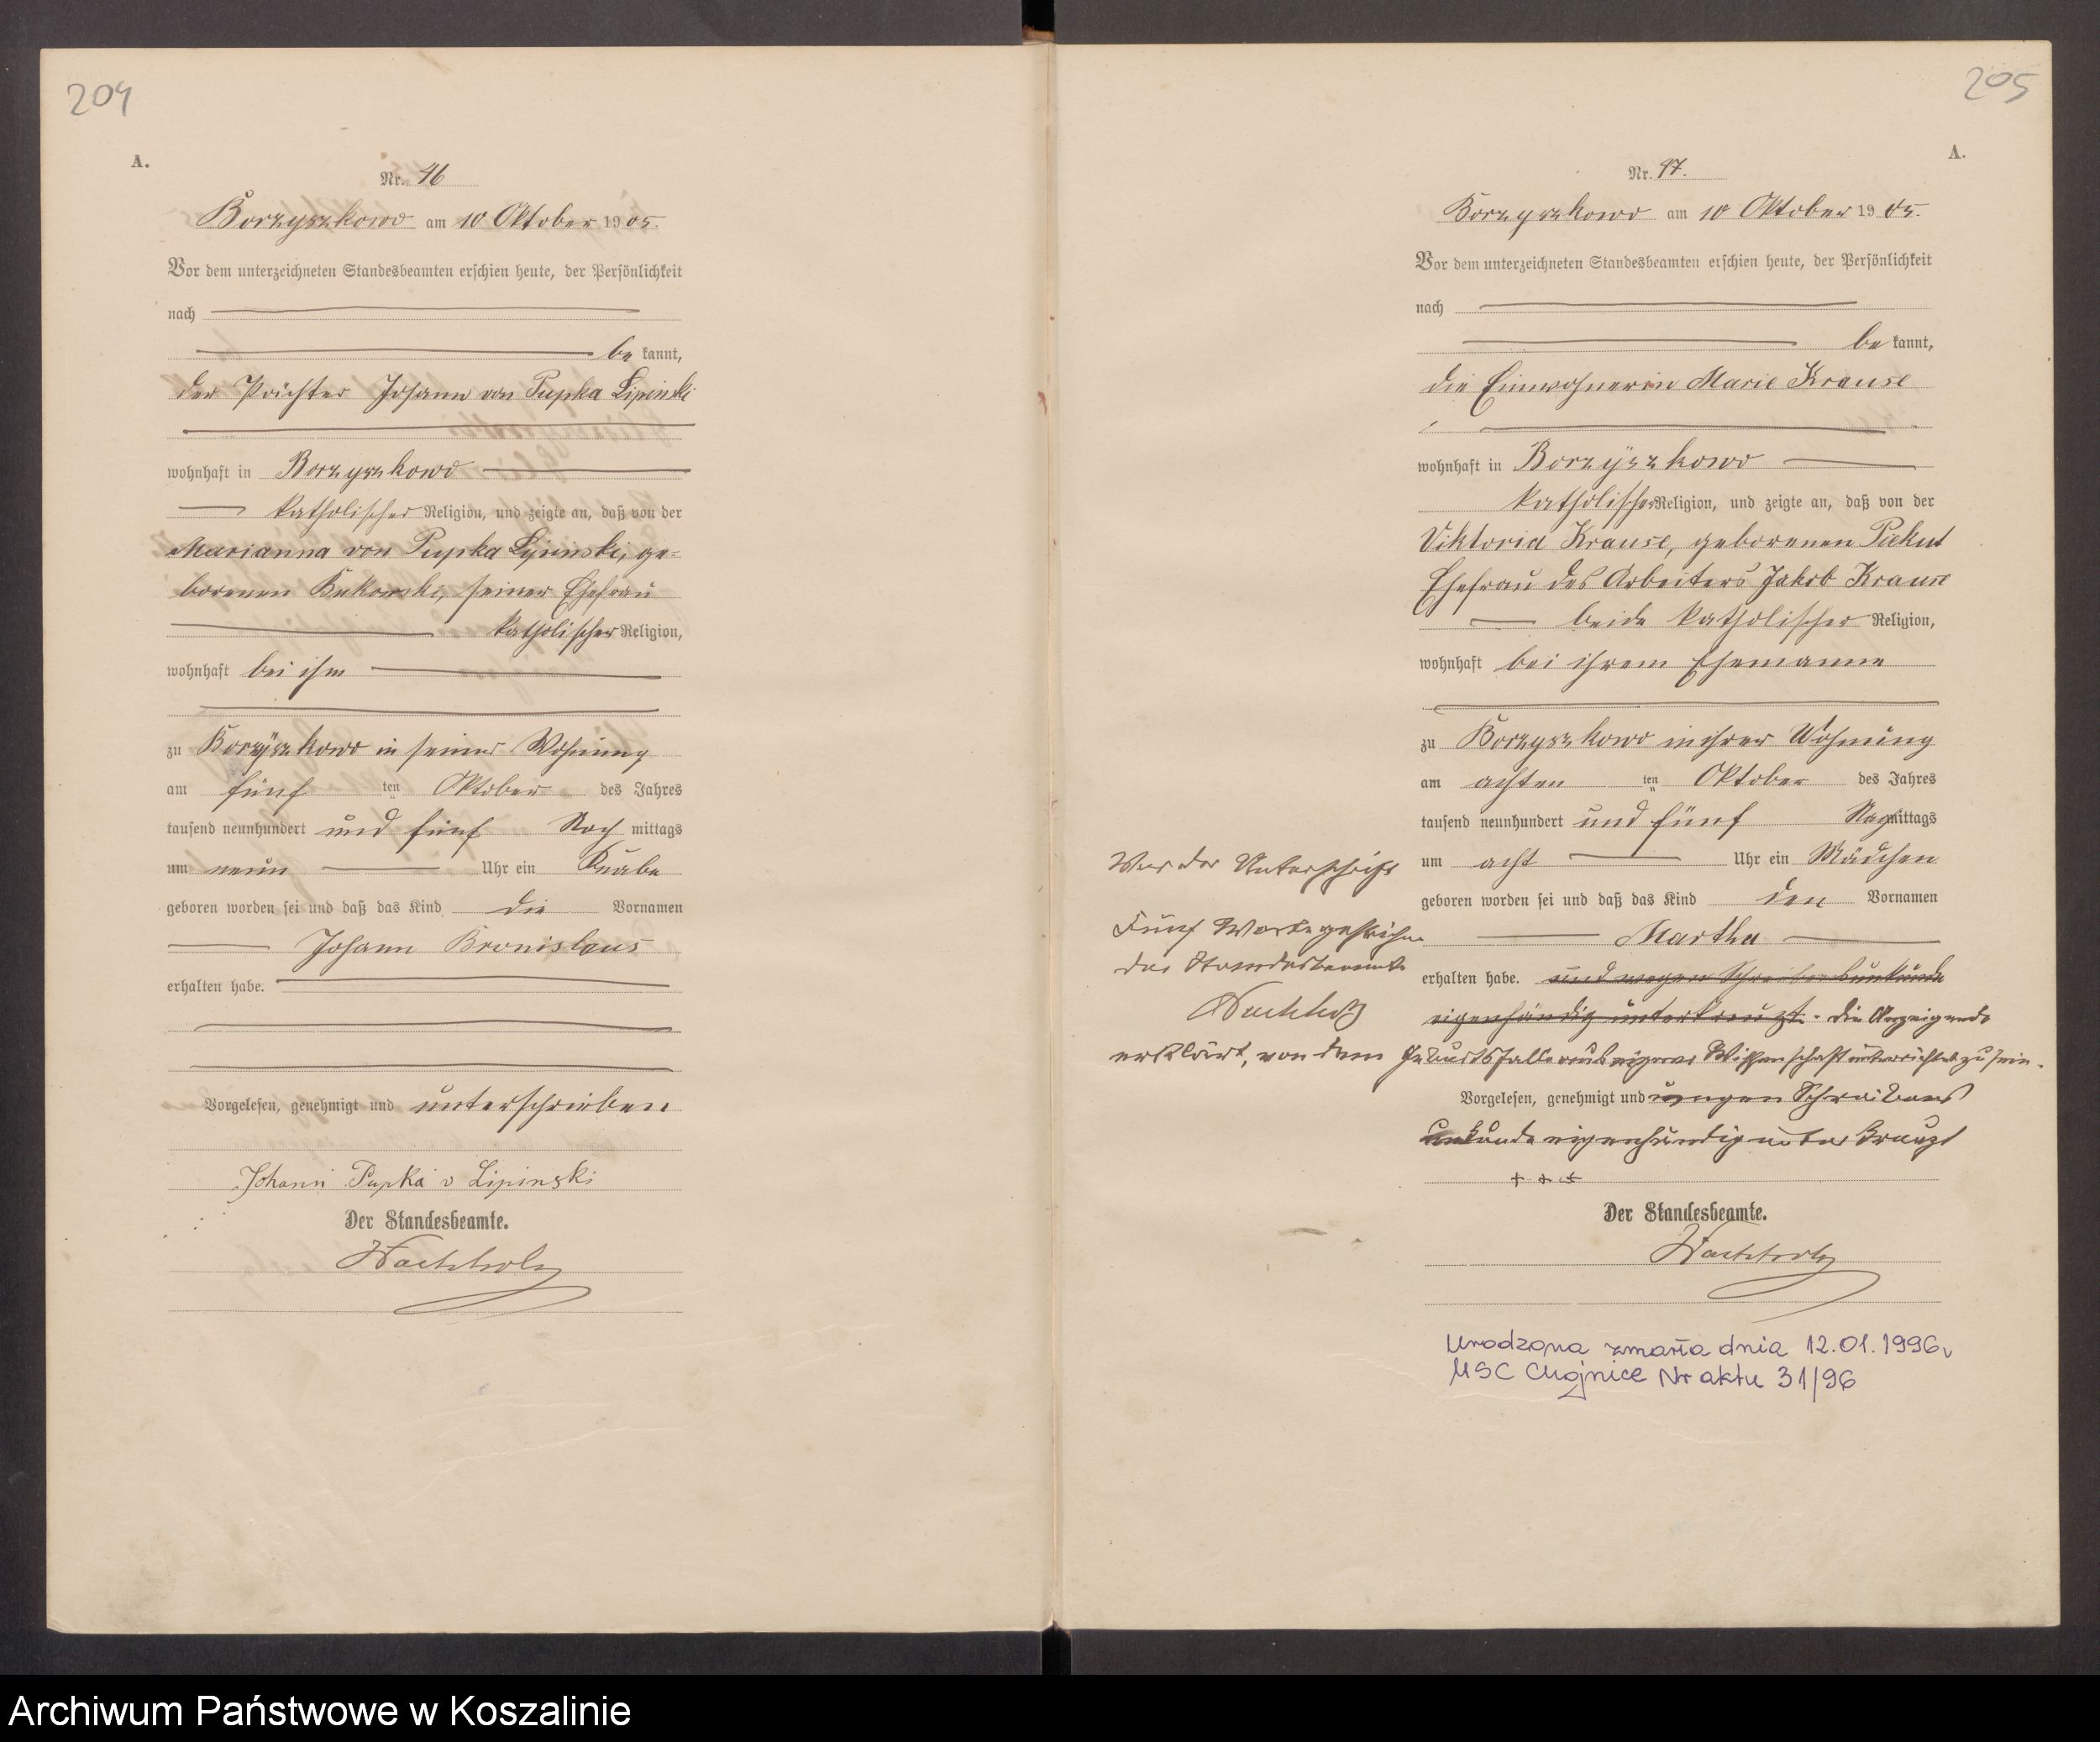 204
A.
Nr. 46
Borzyszkowo am 10 Oktober 1905.
Vor dem unterzeichneten Standesbeamten erschien heute, der Persönlichkeit
nach
be kannt,
der Pächter Johann von Pupka Lipinski
wohnhaft in Borzyszkowo
katholischer Religion, und zeigte an, daß von der
Marianna von Pupka Lipinski, ge-
borenen Kukowski, seiner Ehefrau
katholischer Religion,
wohnhaft bei ihm
zu Borzyszkowo in seiner Wohnung
am fünf ten Oktober des Jahres
tausend neunhundert und fünf Nach mittags
um neun Uhr ein Knabe
geboren worden sei und daß das Kind die Vornamen
Johann Bronislaus
erhalten habe.
Vorgelesen, genehmigt und unterschrieben
Johann Pupka v Lipinski
Der Standesbeamte.
Wachholz
205
A.
Nr. 47.
Borzyszkowo am 10 Oktober 1905.
Vor dem unterzeichneten Standesbeamten erschien heute, der Persönlichkeit
nach
be kannt,
die Einwohnerin Marie Krause
wohnhaft in Borzyszkowo
katholischer Religion, und zeigte an, daß von der
Viktoria Krause, geborenen Piekut
Ehefrau des Arbeiters Jakob Krause
beide katholischer Religion,
wohnhaft bei ihrem Ehemanne
zu Borzyszkowo in ihrer Wohnung
am achten ten Oktober des Jahres
tausend neunhundert und fünf Nachmittags
um acht Uhr ein Mädchen
geboren worden sei und daß das Kind den Vornamen
Martha
erhalten habe. und wegen Schreibensunkunde
eigenhändig unterkreuzt. Die Anzeigende
erklärt, von dem Geburtsfalle aus eigener Wissenschaft unterrichtet zu sein.
Vor der Unterschrift
Fünf Worte gestrichen
der Standesbeamte
Wachholz
Vorgelesen, genehmigt und wegen Schreibens
unkunde eigenhändig unterkreuzt
+ + +
Der Standesbeamte.
Wachholz
Urodzona zmarła dnia 12.01.1996r
USC Chojnice Nr aktu 31/96
Archiwum Państwowe w Koszalinie